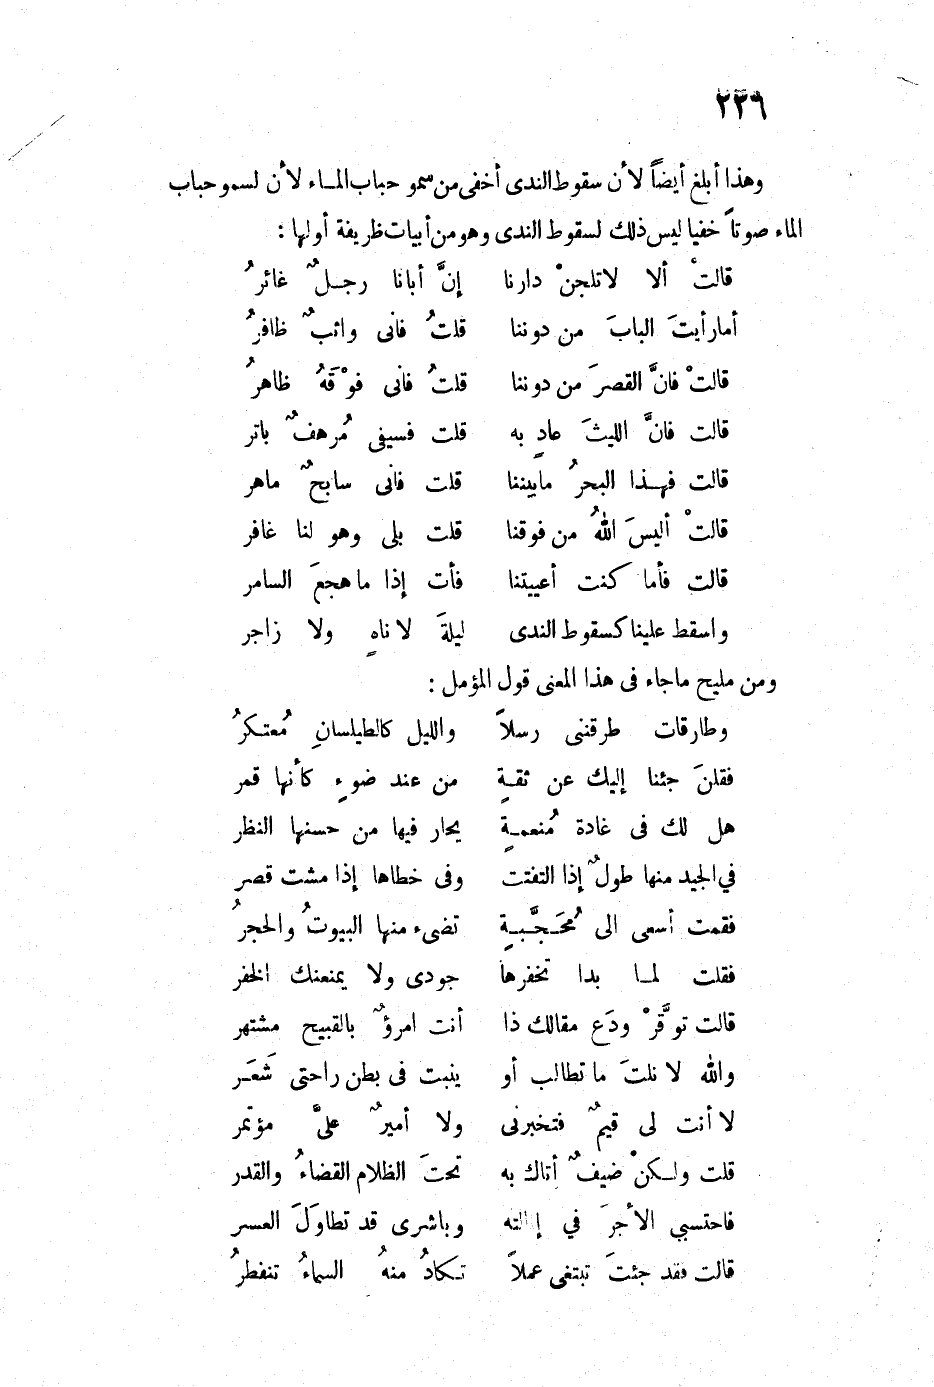 ٢٢٦
وهذا أبلغ أيضاً لأن سقوط الندى أخفى من سمو حباب المـاء لأن لسمو حباب
الماء صوتاً خفيا ليس ذلك لسقوط الندى وهو من أبيات ظريفة أولها :
قالتْ ألا لاتلجنْ دارنا إنَّ أبانا رجـلٌ غائرُ
أما رأيتَ البابَ من دوننا قلتُ فانى واثبٌ ظافرُ
قالتْ فانَّ القصرَ من دوننا قلتُ فانى فوْقَهُ ظاهرُ
قالت فانَّ الليثَ عادٍ به قلت فسيفى مُرهفٌ باتر
قالت فهـذا البحرُ مابيننا قلت فانى سابحٌ ماهر
قالتْ أليسَ اللهُ من فوقنا قلت بلى وهو لنا غافر
قالت فأما كنت أعييتنا فأت إذا ما هجعَ السامر
واسقط علينا كسقوط الندى ليلةَ لا ناهٍ ولا زاجر
ومن مليح ماجاء فى هذا المعنى قول المؤمل :
وطارقات طرقننى رسلاً والليل كالطيلسانِ مُعتـكرُ
فقلنَ جئنا إليك عن ثقـةٍ من عند ضوءٍ كأنها قمر
هل لك فى غادة مُنعمـةٍ يحار فيها من حسنها النظر
في الجيد منها طولٌ إذا التفتت وفى خطاها إذا مشت قصر
فقمت أسعى الى مُحَـجَّبـةٍ تضىء منها البيوتُ والحجرُ
فقلت لمـا بدا تخفرها جودى ولا يمنعنك الخفر
قالت توقَّرْ ودَع مقالك ذا أنت امرؤٌ بالقبيح مشتهر
والله لا نلتَ ما تطالب أو ينبت فى بطن راحتى شَعَـر
لا أنت لى قيمٌ فتخبرنى ولا أميرٌ علىَّ مؤتمر
قلت ولـكنْ ضيفٌ أتاك به تحتَ الظلام القضاءُ والقدر
فاحتسبي الأجرَ في إ الته وباشرى قد تطاوَلَ العسر
قالت فقد جئتَ تبتغى عملاً تـكادُ منهُ السماءُ تنفطرُ